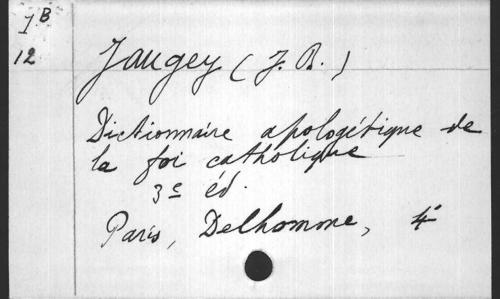 1B
12
Jaugey (J. B.)
Dictionnaire apologétique de
la foi catholique
3e éd.
Paris, Delhomme, 4°